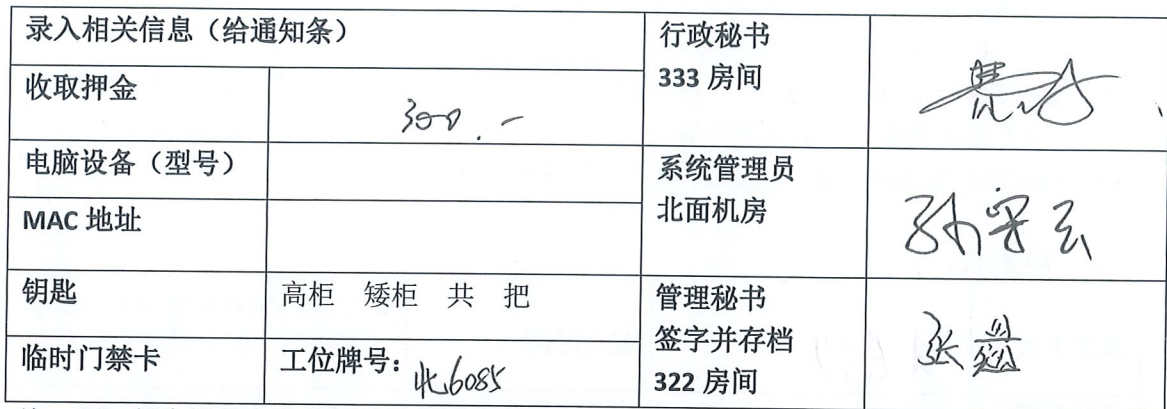 录入相关信息（给通知条）
行政秘书
333 房间
收取押金
300.-
电脑设备（型号）
系统管理员
北面机房
孙守云
MAC 地址
钥匙
高柜 矮柜 共 把
管理秘书
签字并存档
322 房间
张
临时门禁卡
工位牌号：北6085